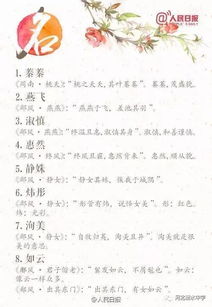 人民日报
名
1. 蓁蓁
《周南·桃夭》:“桃之夭夭,其叶蓁蓁”。蓁蓁,茂盛貌。
2. 燕飞
《邶风·燕燕》:“燕燕于飞,差池其羽”。
3. 淑慎
《邶风·燕燕》:“终温且惠,淑慎其身”。淑慎,和善谨慎。
4. 惠然
《邶风·终风》:“终风且霾,惠然肯来”。惠然,顺从貌。
5. 静姝
《邶风·静女》:“静女其姝,俟我于城隅”。
6. 炜彤
《邶风·静女》:“彤管有炜,说怿女美”。彤:红色。
炜:光彩。
7. 洵美
《邶风·静女》:“自牧归荑,洵美且异”。洵美就是很
美的意思。
8. 如云
《鄘风·君子偕老》:“鬒发如云,不屑髢也”。如云:
像云一样众多。
《郑风·出其东门》:“出其东门,有女如云”。
@人民日报